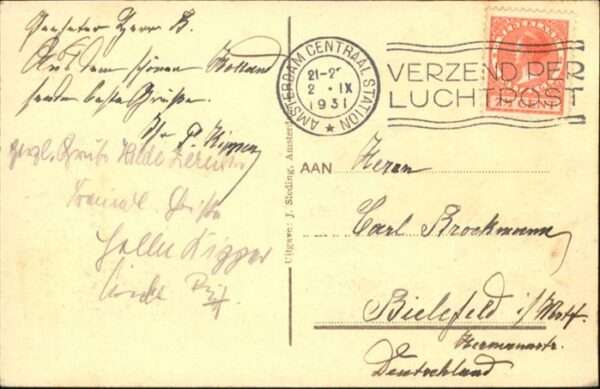 Geehrter Herr B.
Aus dem schönen Holland
senden beste Grüße.
Ihr P. Kipper
Herzl. Grüße Hilde
Grüße
AMSTERDAM CENTRAAL STATION
21-2
2 . IX
1931
VERZEND PER
LUCHTPOST
NEDERLAND
7½ CENT
Uitgave: J. Sleding, Amsterdam
AAN
Herrn
Carl Brockmann
Bielefeld i/Westf.
Hermannstr.
Deutschland